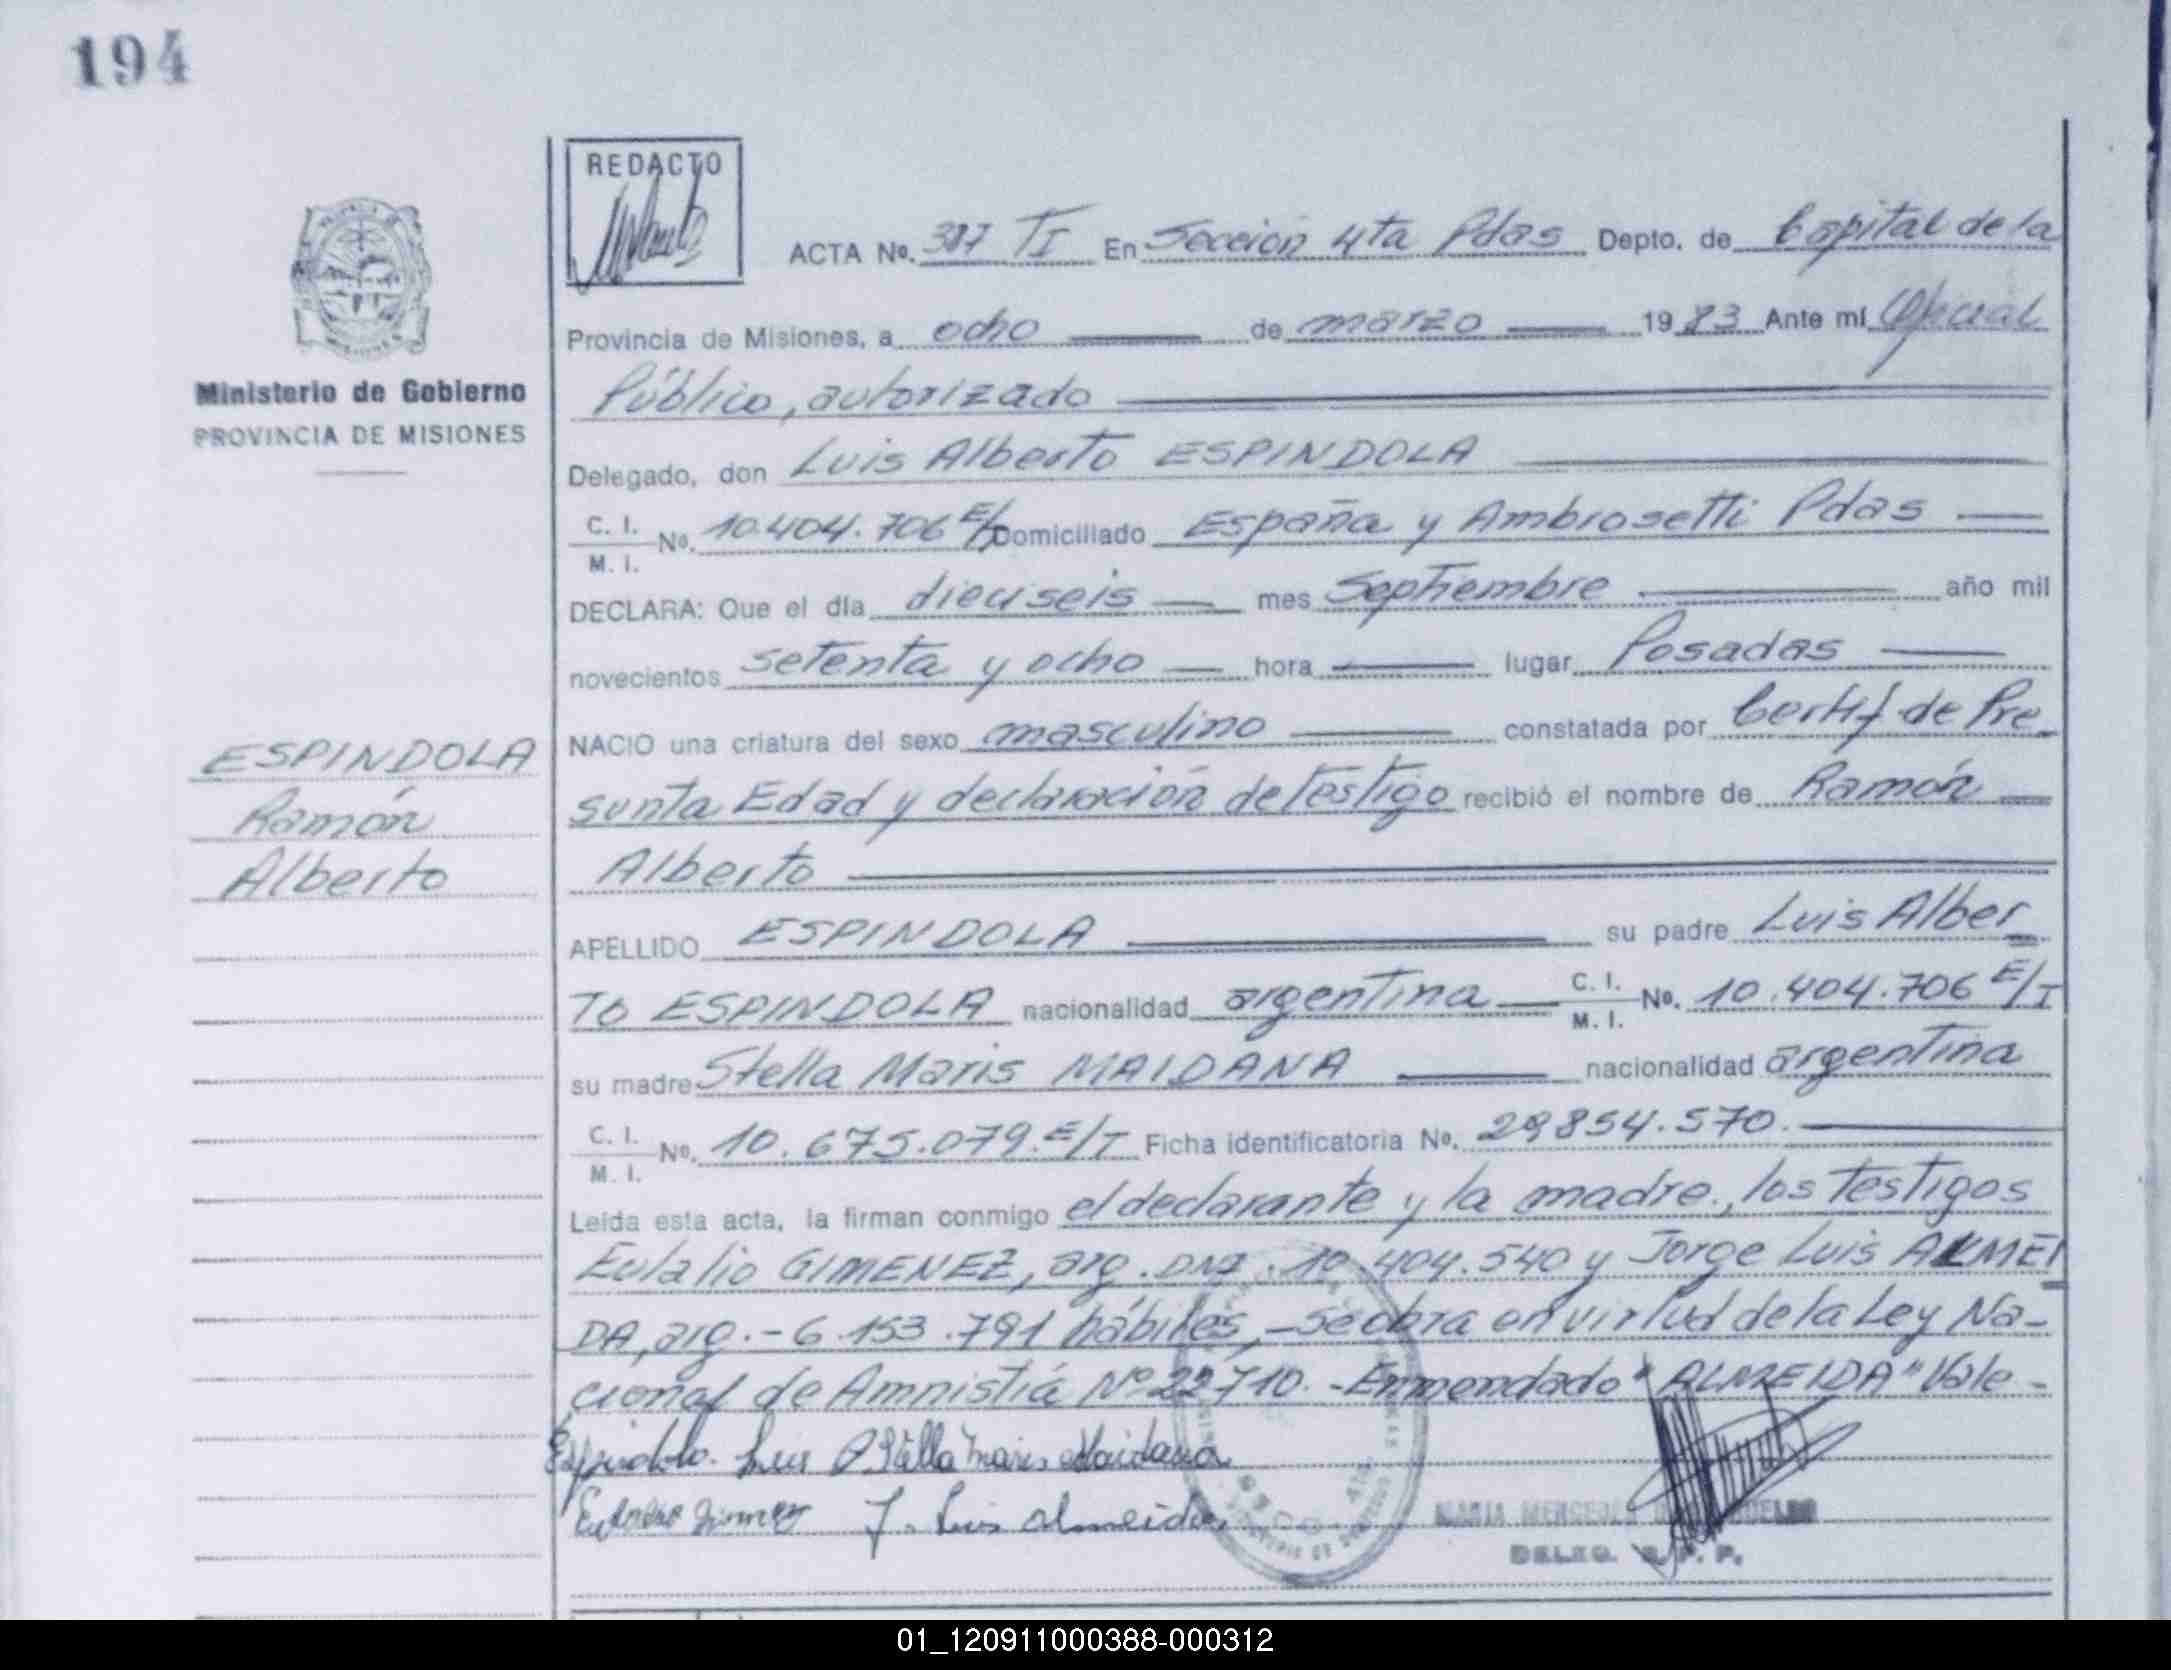 194
REDACTO
ACTA Nº. 387 TI En Sección 4ta Pdas Depto. de Capital de la
Provincia de Misiones, a ocho de marzo 1983 Ante mí Oficial
Público, autorizado
Ministerio de Gobierno
PROVINCIA DE MISIONES
Delegado, don Luis Alberto ESPINDOLA
C. I.
M. I. Nº. 10.404.706 E/T Domiciliado España y Ambrosetti Pdas
DECLARA: Que el día dieciseis mes Septiembre año mil
novecientos setenta y ocho hora lugar Posadas
NACIO una criatura del sexo masculino constatada por Certif de Pre
sunta Edad y declaración de testigo recibió el nombre de Ramón
Alberto
ESPINDOLA
Ramón
Alberto
APELLIDO ESPINDOLA su padre Luis Alber
To ESPINDOLA nacionalidad argentina C. I.
M. I. Nº. 10.404.706 E/T
su madre Stella Maris MAIDANA nacionalidad argentina
C. I.
M. I. Nº. 10.675.079. E/T Ficha identificatoria Nº. 29854.570.
Leída esta acta, la firman conmigo el declarante y la madre, los testigos
Eulalio GIMENEZ, arg. DNI. 10.404.540 y Jorge Luis ALMEI
DA, arg.- 6.153.791 hábiles,- se obra en virtud de la Ley Na-
cional de Amnistía Nº 22710.- Enmendado "ALMEIDA" Vale-
Espindola Luis A Stella Maris Maidana
Eulalio Gimenez J. Luis Almeida
MARIA MERCEDES
DELEG. R. P. P.
01_120911000388-000312